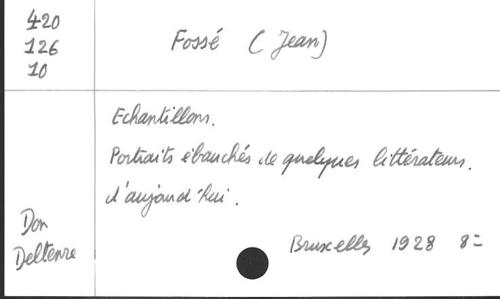 420
126
10
Fossé (Jean)
Echantillons.
Portraits ébauchés de quelques littérateurs.
d'aujourd'hui.
Don
Deltenre
Bruxelles 1928 8=